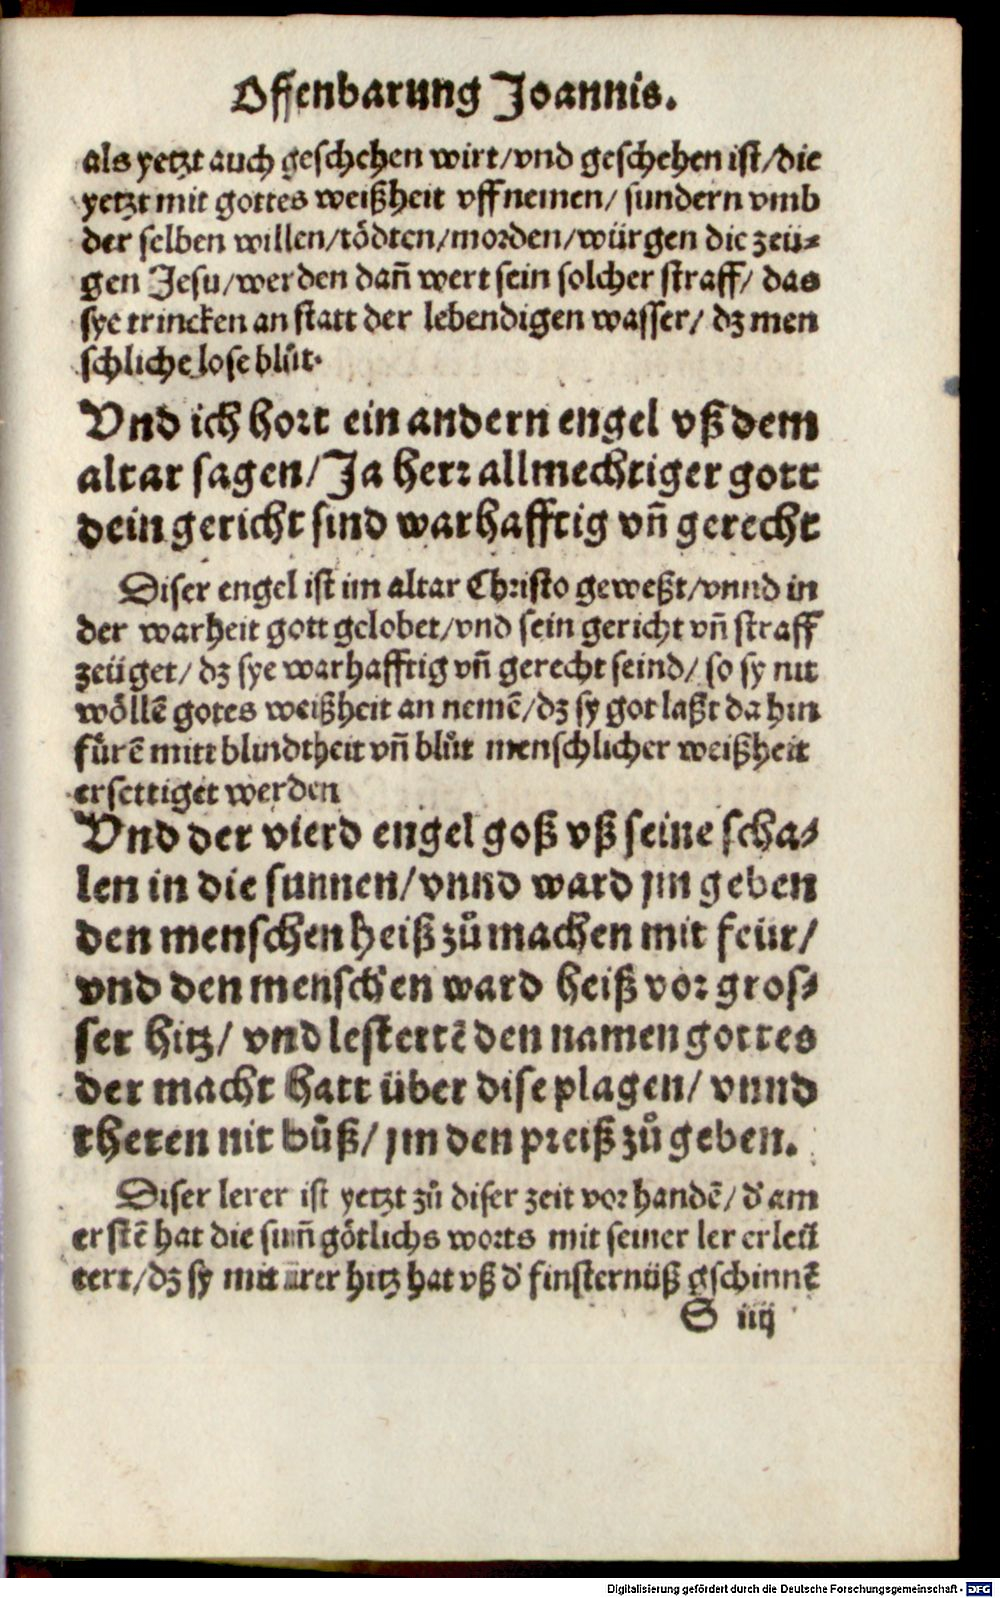 Offenbarung Joannis.
als yetzt auch geschehen wirt/vnd geschehen ist/die
yetzt mit gottes weißheit vffnemen/ sundern vmb
der selben willen/tödten/morden/würgen die zeü⸗
gen Jesu/werden dañ wert sein solcher straff/ das
sye trincken an statt der lebendigen wasser/ dz men
schliche lose blůt.
Vnd ich hort ein andern engel vß dem
altar sagen/Ja herr allmechtiger gott
dein gericht sind warhafftig vñ gerecht
Diser engel ist im altar Christo geweßt/vnnd in
der warheit gott gelobet/vnd sein gericht vñ straff
zeüget/ dz sye warhafftig vñ gerecht seind/ so sy nit
wöllẽ gotes weißheit an nemẽ/dz sy got laßt da hin
fürẽ mitt blindtheit vñ blůt menschlicher weißheit
ersettiget werden
Vnd der vierd engel goß vß seine scha⸗
len in die sunnen/vnnd ward jm geben
den menschen heiß zů machen mit feür/
vnd den menschen ward heiß vor gros⸗
ser hitz/ vnd lestertẽ den namen gottes
der macht hatt über dise plagen/ vnnd
theten nit bůß/ jm den preiß zů geben.
Diser lerer ist yetzt zů diser zeit vorhandẽ/ d' am
erstẽ hat die suñ götlichs worts mit seiner ler erleü
tert/dz sy mit irer hitz hat vß d' finsternüß gschinnẽ
S iiij
Digitalisierung gefördert durch die Deutsche Forschungsgemeinschaft - DFG